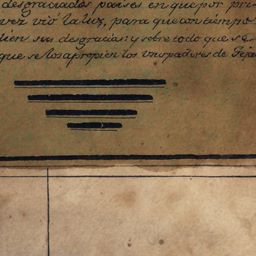 desgraciados paises en que por pri
vez vió la luz, para que con tiempo
dien sus desgracias: y sobre todo que se
que se los apropien los Vsurpadores de Teja